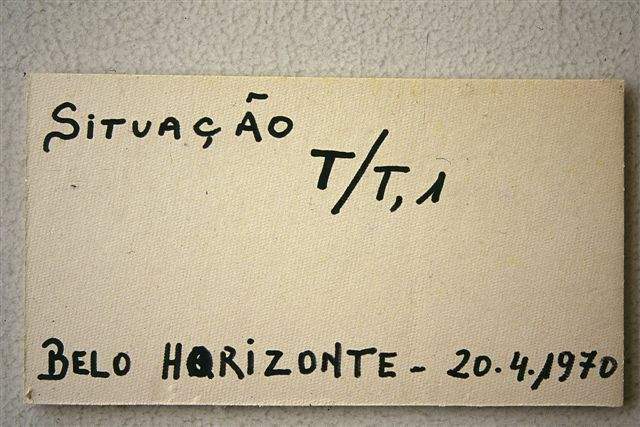 SITUAÇÃO
T/T, 1
BELO HORIZONTE - 20.4.1970